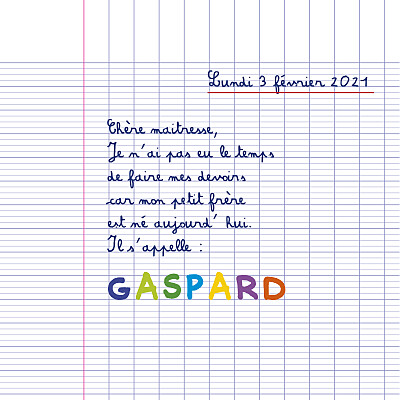 Lundi 3 février 2021
Chère maitresse,
Je n'ai pas eu le temps
de faire mes devoirs
car mon petit frère
est né aujourd' hui.
Il s'appelle :
GASPARD